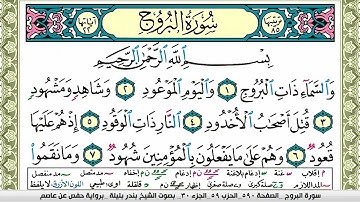 سُورَةُ الْبُرُوجِ
بِسْمِ اللَّهِ الرَّحْمَٰنِ الرَّحِيمِ
وَالسَّمَاءِ ذَاتِ الْبُرُوجِ ١ وَالْيَوْمِ الْمَوْعُودِ ٢ وَشَاهِدٍ وَمَشْهُودٍ
٣ قُتِلَ أَصْحَابُ الْأُخْدُودِ ٤ النَّارِ ذَاتِ الْوَقُودِ ٥ إِذْ هُمْ عَلَيْهَا
قُعُودٌ ٦ وَهُمْ عَلَىٰ مَا يَفْعَلُونَ بِالْمُؤْمِنِينَ شُهُودٌ ٧ وَمَا نَقَمُوا
سورة البروج الصفحة ٥٩٠ الحزب ٥٩ الجزء ٣٠ بصوت الشيخ بندر بليلة برواية حفص عن عاصم